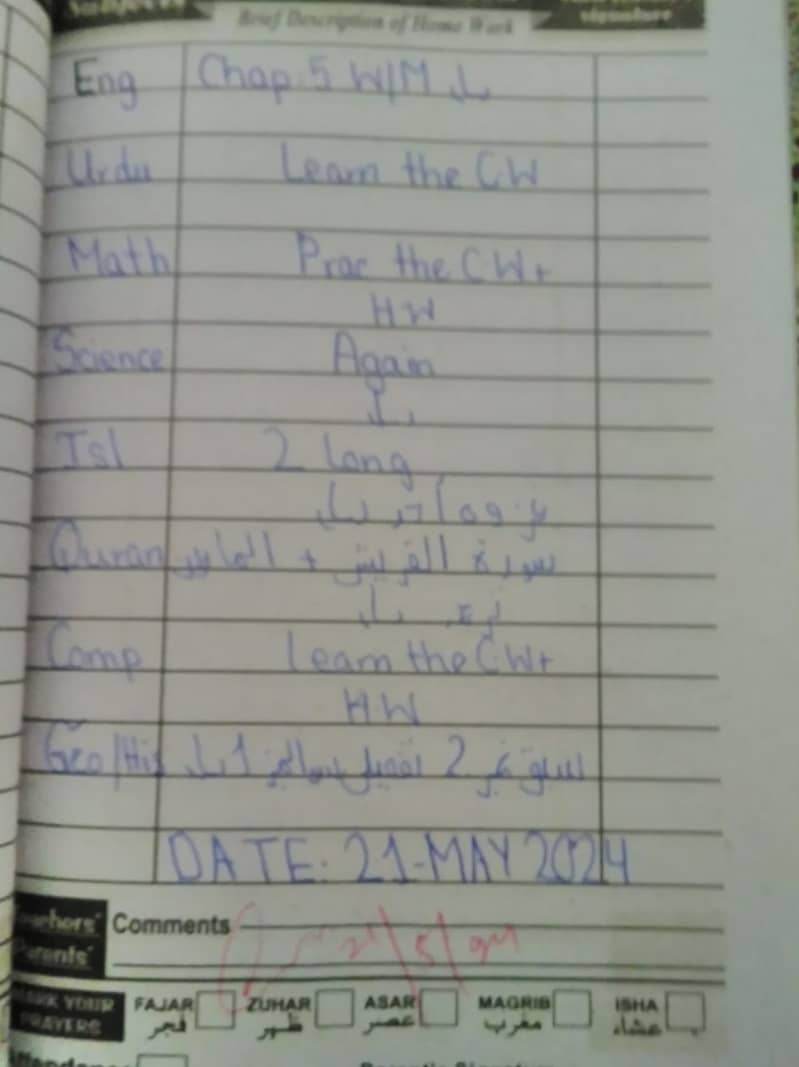 Brief Description of Home Work
Eng Chap. 5 W/M یاد
Urdu Learn the CW
Math Prac the CW+
HW
Science Again
یاد
Isl 2 Long
یاد
Quran سورۃ القریش + الماعون
یاد
Comp Learn the CW+
HW
Geo/His سبق نمبر 2 سوال نمبر 1 یاد
DATE: 21-MAY 2024
Teachers' Comments
Parents'
21/5/24
MARK YOUR PRAYERS
FAJAR ZUHAR ASAR MAGRIB ISHA
فجر ظہر عصر مغرب عشاء